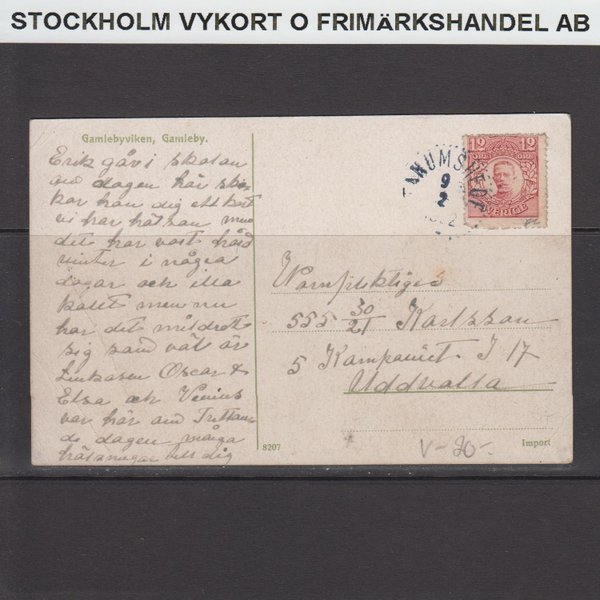 STOCKHOLM VYKORT O FRIMÄRKSHANDEL AB
Gamlebyviken, Gamleby.
Erik går i skolan
om dagen här ski-
kar han dig ett kort
vi har hälsan men
det har vart hård
vinter i några
dagar och illa
kalt men nu
har det mildrat
sig samt vät är
Oscar &
Elsa och Venius
var här om Trettan-
de dagen många
hälsningar till dig
12 12
SVERIGE
TANUMSHEDE
9
2
Värnpliktige
555 30/21 Karlsson
5 Kompaniet I 17
Uddvalla
8207
V-20-
Import